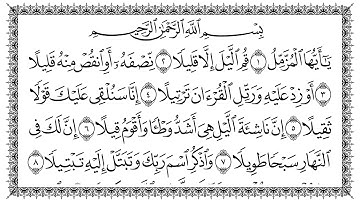 بِسْمِ ٱللَّهِ ٱلرَّحْمَٰنِ ٱلرَّحِيمِ
يَٰٓأَيُّهَا ٱلْمُزَّمِّلُ ١ قُمِ ٱلَّيْلَ إِلَّا قَلِيلًا ٢ نِّصْفَهُۥٓ أَوِ ٱنقُصْ مِنْهُ قَلِيلًا
٣ أَوْ زِدْ عَلَيْهِ وَرَتِّلِ ٱلْقُرْءَانَ تَرْتِيلًا ٤ إِنَّا سَنُلْقِى عَلَيْكَ قَوْلًا
ثَقِيلًا ٥ إِنَّ نَاشِئَةَ ٱلَّيْلِ هِىَ أَشَدُّ وَطْـًٔا وَأَقْوَمُ قِيلًا ٦ إِنَّ لَكَ فِى
ٱلنَّهَارِ سَبْحًا طَوِيلًا ٧ وَٱذْكُرِ ٱسْمَ رَبِّكَ وَتَبَتَّلْ إِلَيْهِ تَبْتِيلًا ٨